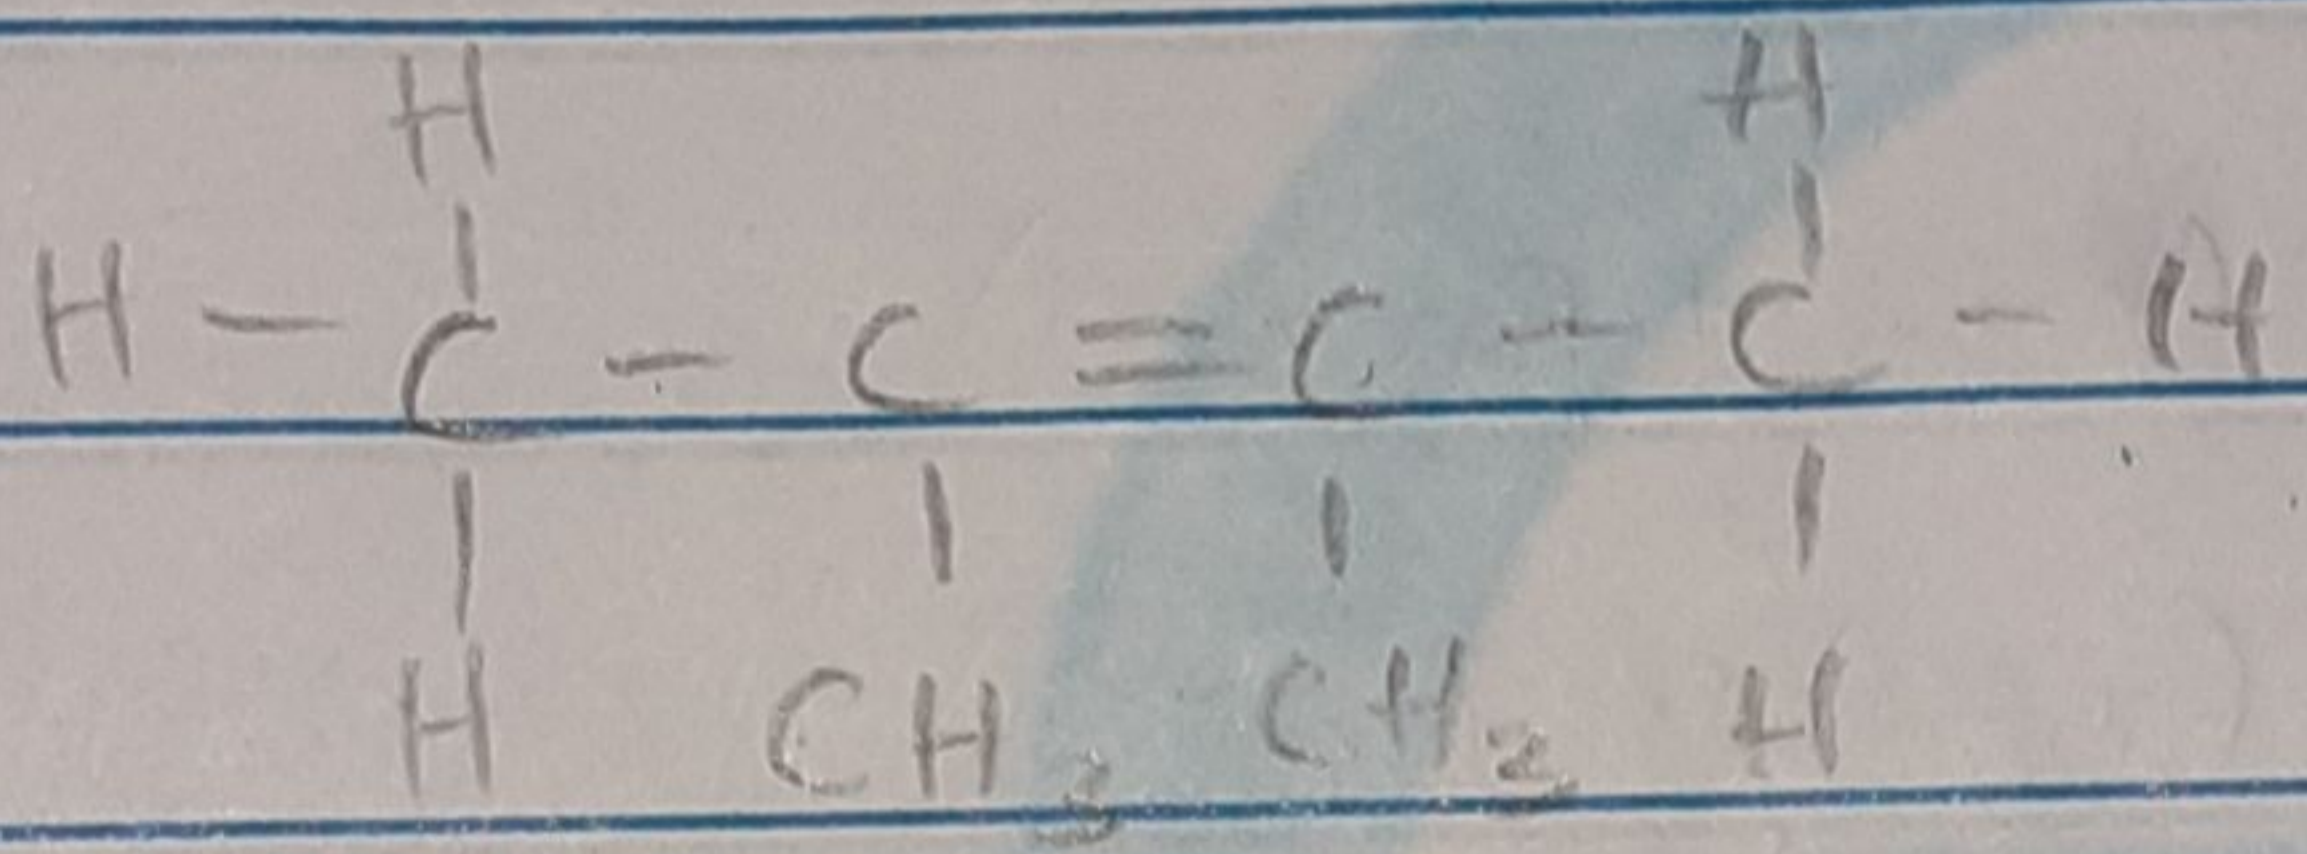 H H
| |
H - C - C = C - C - H
| | | |
H CH3 CH2 H